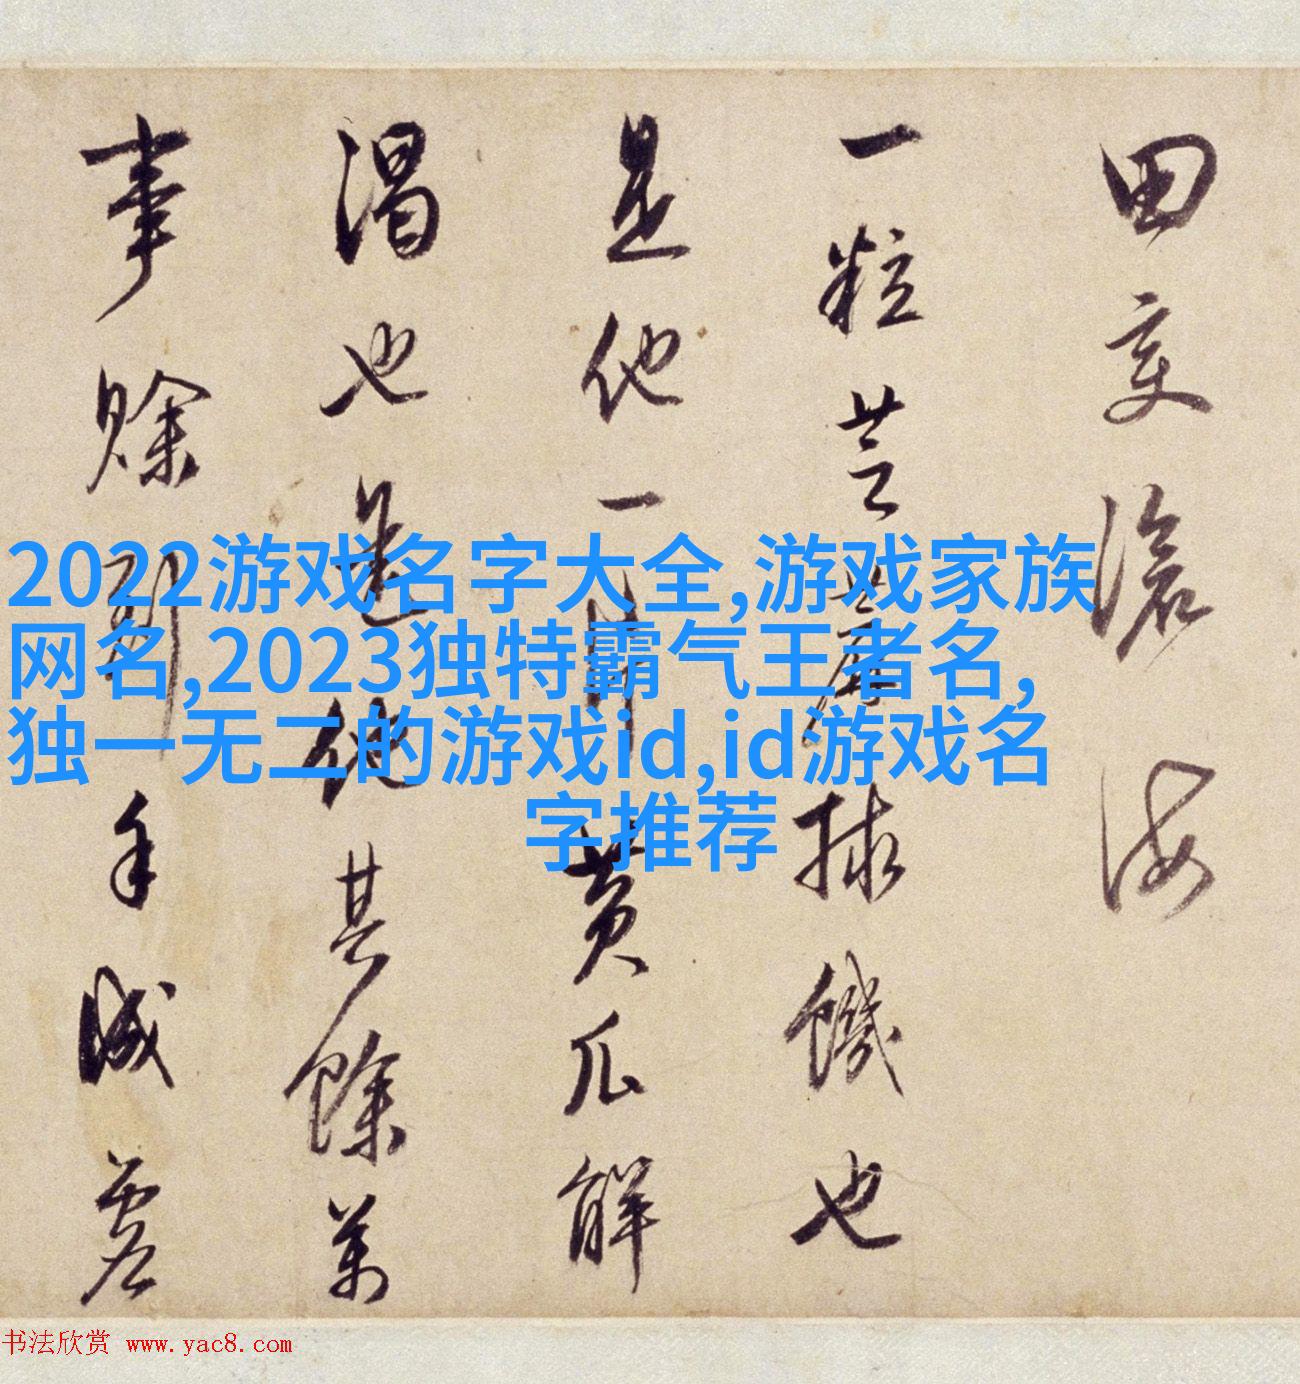 田变滄海
一粒芝麻捄饑也
是他一片黄瓜解
渴也是他其餘萬
事賒到手
2022游戏名字大全,游戏家族
网名,2023独特霸气王者名,
独一无二的游戏id,id游戏名
字推荐
书法欣赏 www.yac8.com